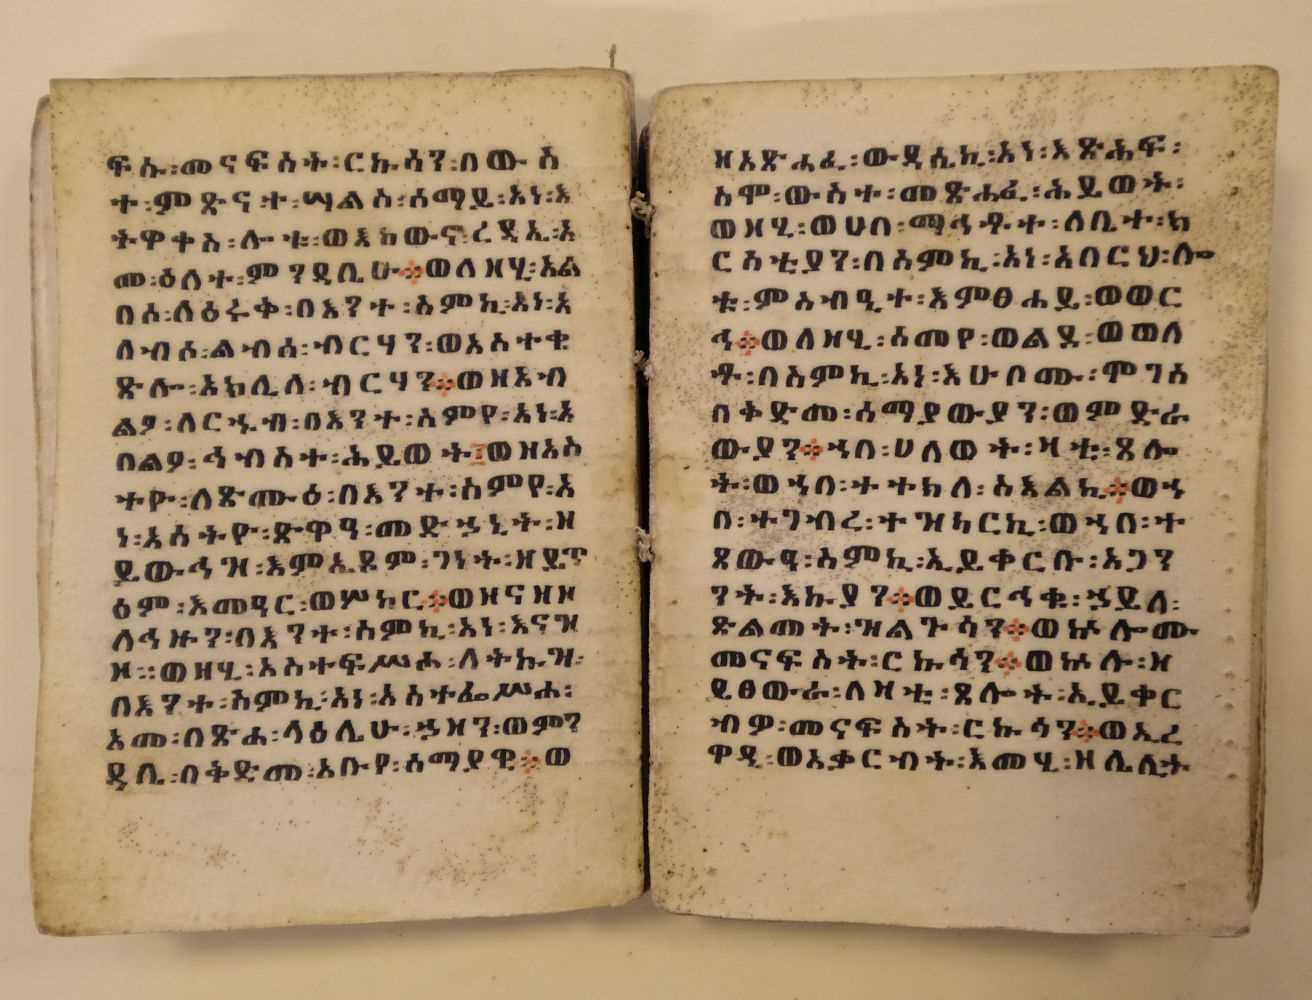 ፍሱ፡መናፍስት፡ርኩሳን፡በውስ
ተ፡ምጽናተ፡ሣልስ፡ሰማይ፡አነ፡እ
ትዋቀስ፡ሎቱ፡ወእከውኖ፡ረዳኢ፡እ
መ፡ዕለተ፡ምንዳቤሁ፨ወለዘሂ፡አል
በሰ፡ለዕሩቅ፡በእንተ፡ስምኪ፡አነ፡አ
ለብሶ፡ልብሰ፡ብርሃን፡ወእስተቄ
ጽሎ፡አክሊለ፡ብርሃን፨ወዘአብ
ልዖ፡ለርኁብ፡በእንተ፡ስምየ፡አነ፡አ
በልዖ፡ኅብስተ፡ሕይወት፤ወዘአስ
ተዮ፡ለጽሙዕ፡በእንተ፡ስምየ፡አ
ነ፡አሰትዮ፡ጽዋዓ፡መድኃኒት፡ዘ
ይውኅዝ፡እምኤዶም፡ገነት፡ዘይጥ
ዕም፡እመዓር፡ወሦከር፨ወዘናዘዘ
ለኅዙን፡በእንተ፡ስምኪ፡አነ፡እናዝ
ዞ፡፡ወዘሂ፡አስተፍሥሐ፡ለትኩዝ፡
በእንተ፡ስምኪ፡አነ፡አስተፌሥሖ፡
አመ፡በጽሐ፡ላዕሌሁ፡ኃዘን፡ወምን
ዳቤ፡በቅድመ፡አቡየ፡ሰማያዊ፨ወ
ዘአጽሐፈ፡ውዳሴኪ፡አነ፡እጽሕፍ፡
ስሞ፡ውስተ፡መጽሐፈ፡ሕይወት፡
ወዘሂ፡ወሀበ፡ማኅቶተ፡ለቤተ፡ክ
ርስቲያን፡በስምኪ፡አነ፡አበርህ፡ሎ
ቱ፡ምስብዒተ፡እምፀሐይ፡ወወር
ኅ፨ወለዘሂ፡ሰመየ፡ወልዶ፡ወወለ
ቶ፡በስምኪ፡አነ፡እሁቦሙ፡ሞገሰ
በቅድመ፡ሰማያውያን፡ወምድራ
ውያን፨ኀበ፡ሀለወት፡ዛቲ፡ጸሎ
ት፡ወኀበ፡ተተክለ፡ስእልኪ፨ወኀ
በ፡ተገብረ፡ተዝካርኪ፡ወኀበ፡ተ
ጸውዓ፡ስምኪ፡ኢይቀርቡ፡አጋን
ንት፡እኩያን፨ወይርኅቁ፡ኃይለ፡
ጽልመት፡ዝልጉሳን፨ወኵሎሙ
መናፍስት፡ርኩሳን፨ወኵሉ፡ዘ
ይፀውራ፡ለዛቲ፡ጸሎት፡ኢይቀር
ብዎ፡መናፍስት፡ርኩሳን፨ወኢረ
ዋዲ፡ወአቃርብት፡እመሂ፡ዘሌሊት